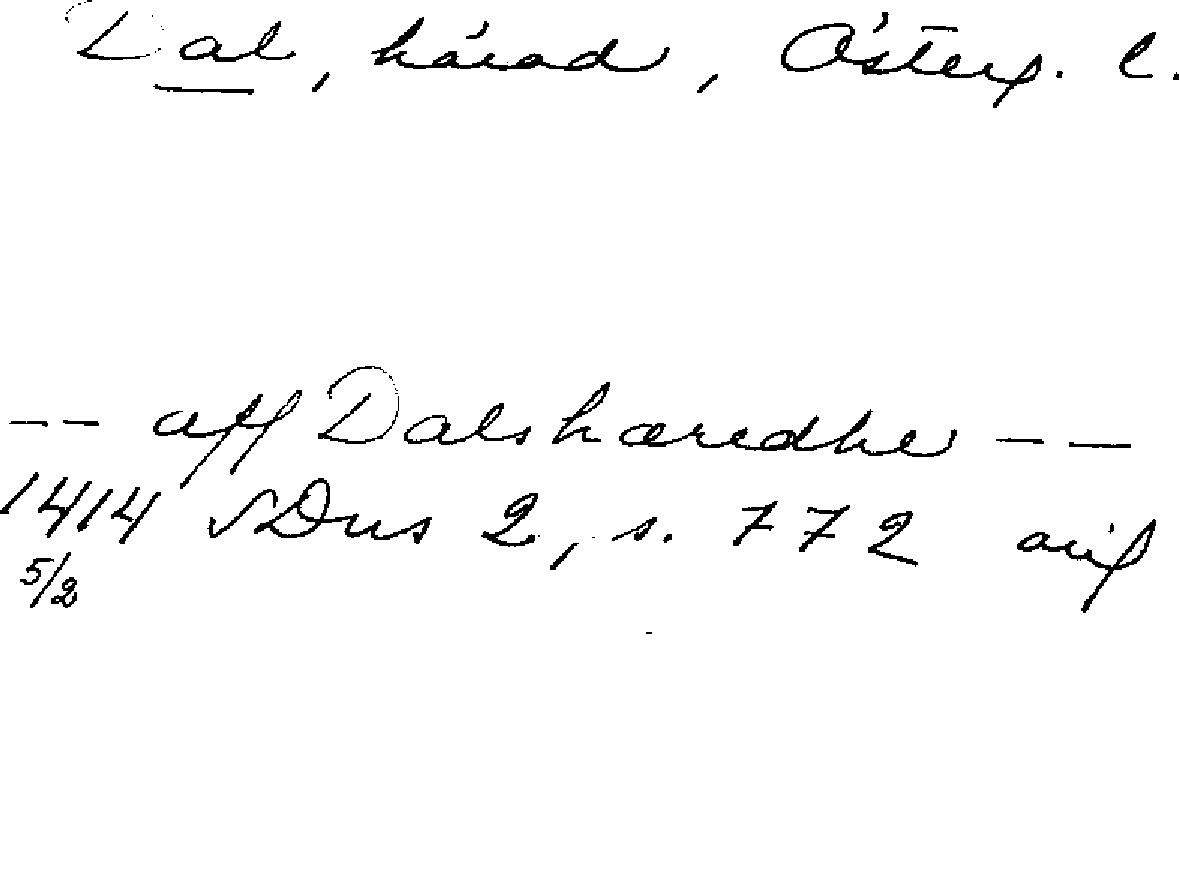 Dal, härad, Österg. l.
-- aff Dalshæredhe --
1414 SDns 2, s. 772 avskr
5/2